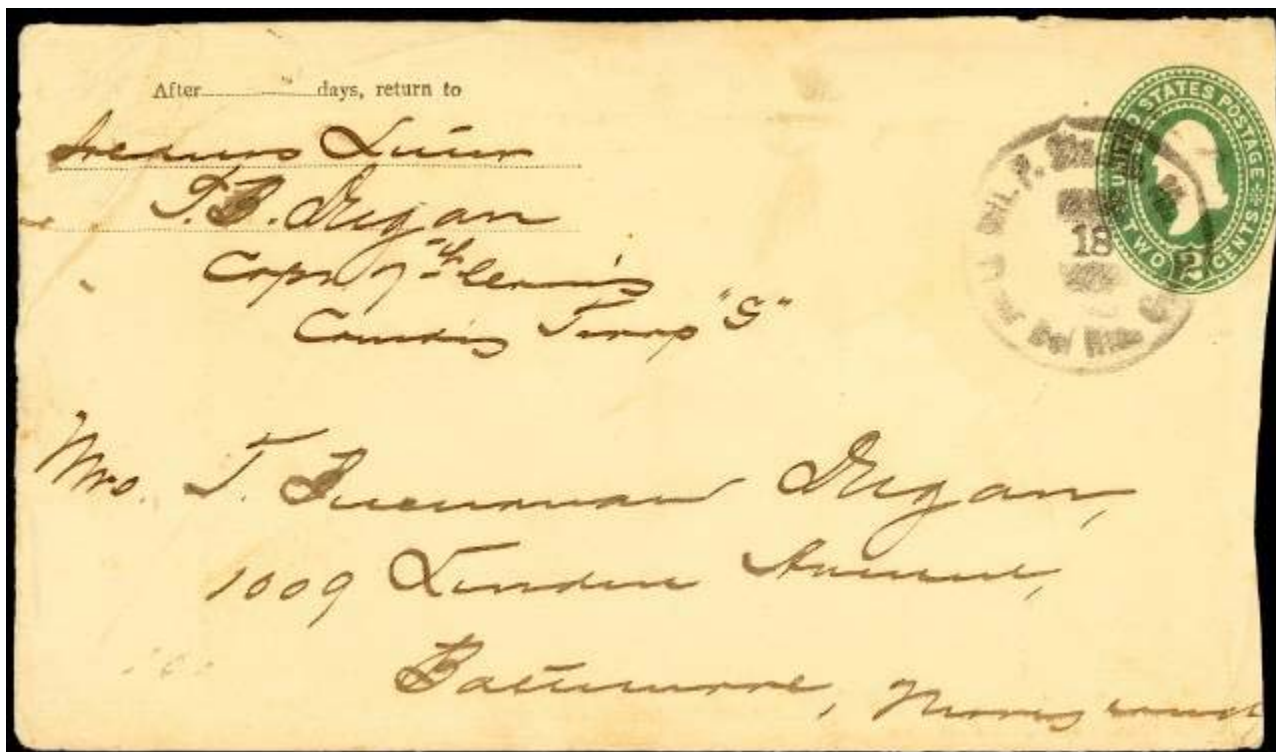 After ............ days, return to
Soldiers Letter
T. B. Dugan
Capt 7th Cavy
Comdg Troop "G"
UNITED STATES POSTAGE
TWO 2 CENTS
MIL. P.
18
Mrs. T. Buchanan Dugan,
1009 Linden Avenue,
Baltimore, Maryland